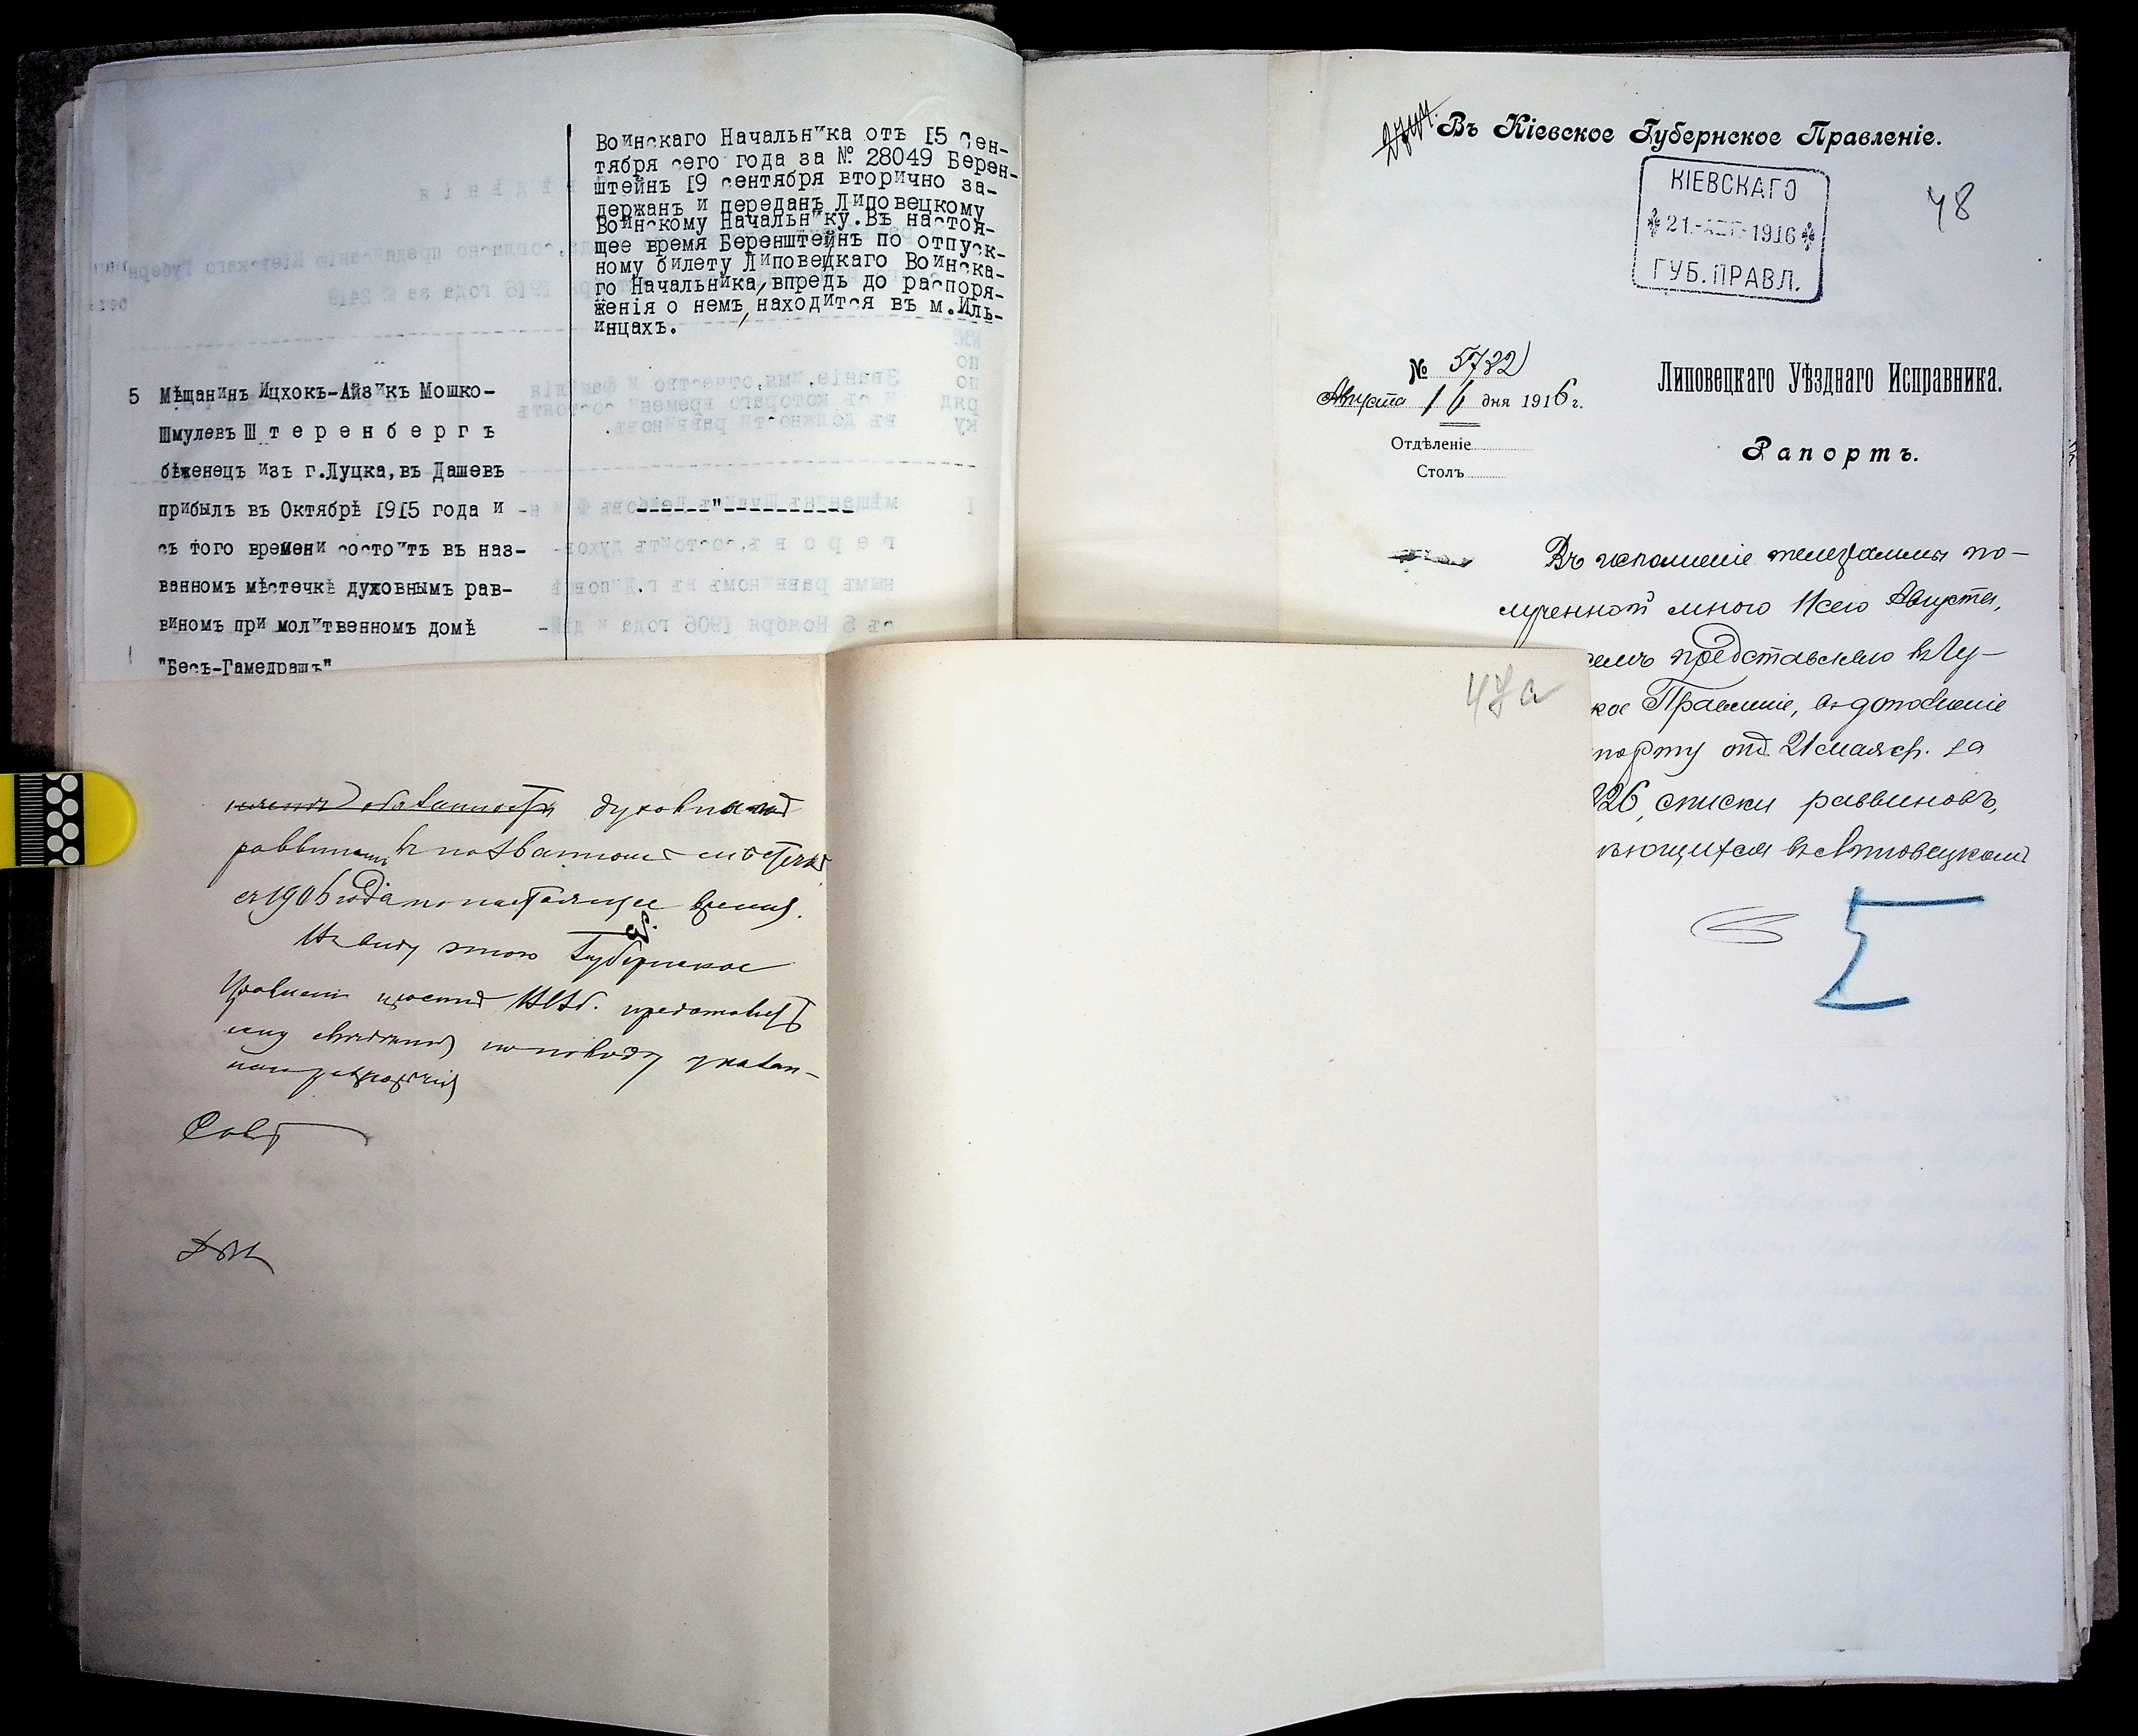 Воинскаго Начальника отъ I5 Сен-
тября сего года за № 28049 Берен-
штейнъ I9 сентября вторично за-
держанъ и переданъ Липовецкому
Воинскому Начальнику.Въ настоя-
щее время Беренштейнъ по отпуск-
ному билету Липовецкаго Воинска-
го Начальника,впредь до распоря-
женія о немъ,находится въ м.Иль-
инцахъ.
5 Мѣщанинъ Ицхокъ-Айзикъ Мошко-
Шмулевъ Ш т е р е н б е р г ъ
бѣженецъ изъ г.Луцка,въ Дашевъ
прибылъ въ Октябрѣ I9I5 года и
съ того времени состоитъ въ наз-
ванномъ мѣстечкѣ духовнымъ рав-
виномъ при молитвенномъ домѣ
"Бесъ-Гамедрашъ"
------"-----------
47а
духовнымъ
раввиномъ въ названномъ мѣстечкѣ
съ 1906 года по настоящее время.
Въ виду этого Губернское
Правленіе проситъ представить
ему по поводу указан-
Въ Кіевское Губернское Правленіе.
48
КІЕВСКАГО
21. АВГ. 1916
ГУБ. ПРАВЛ.
№ 5722
Августа 16 дня 1916 г.
Отдѣленіе
Столъ
Липовецкаго Уѣзднаго Исправника.
Рапортъ.
Въ исполненіе телеграммы по-
лученной мною 11 сего Августа,
семъ представляю въ Гу-
кое Правленіе, въ дополненіе
порту отъ 21 мая с.г. за
226, списки раввиновъ,
ющихся въ Липовецкомъ